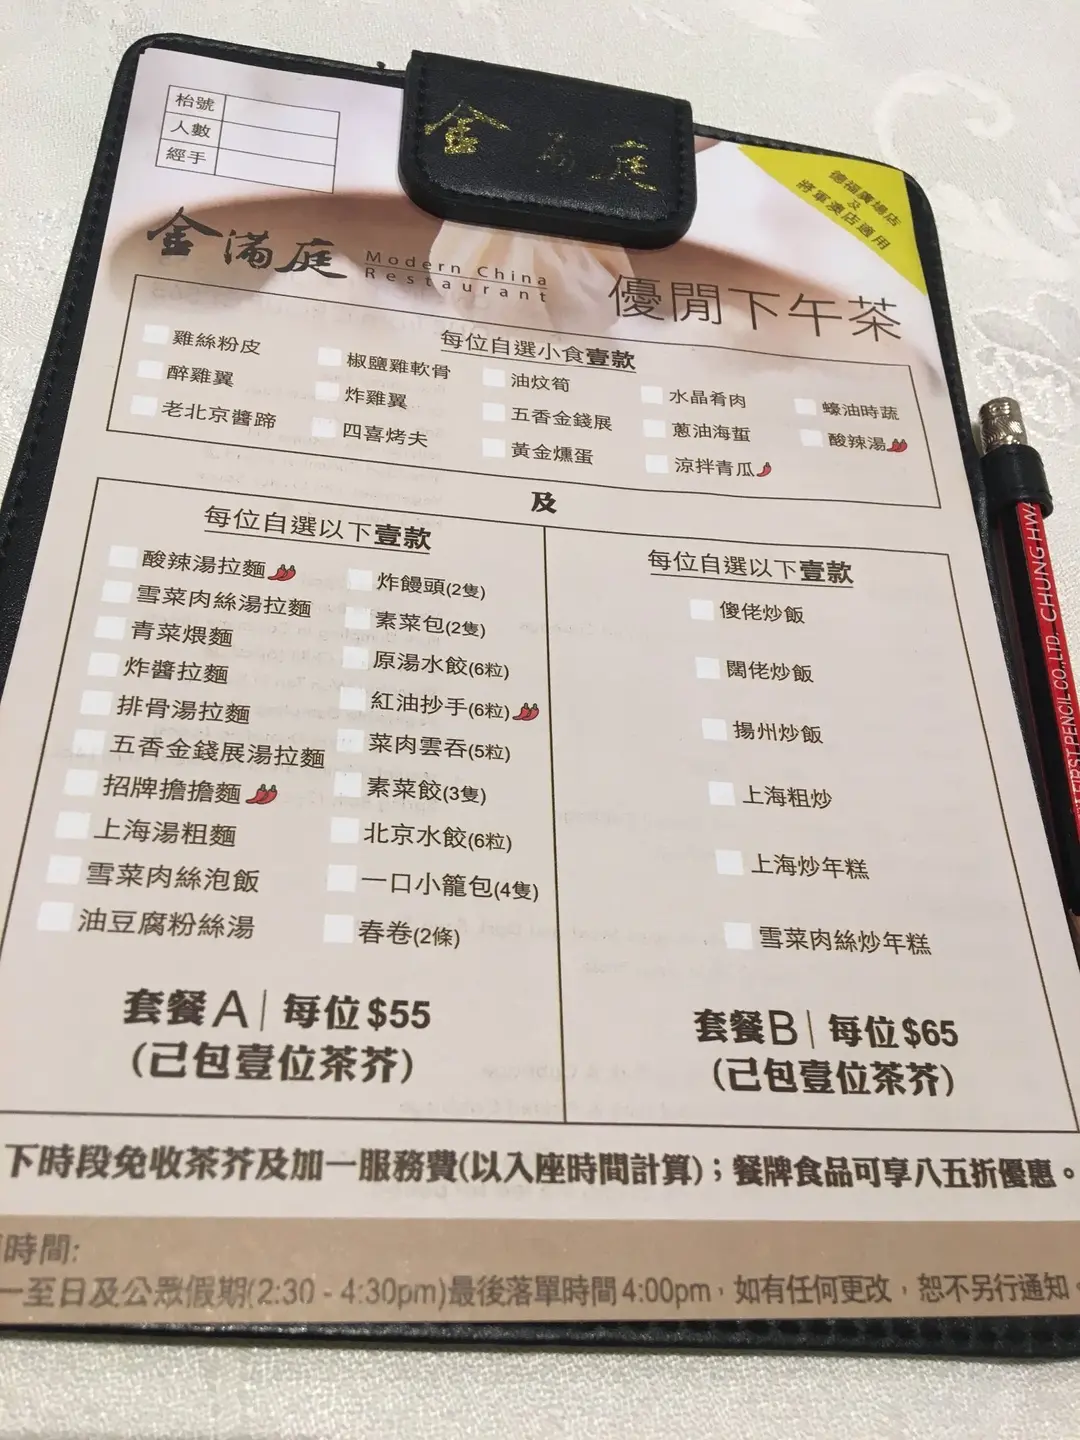 金滿庭
枱號
人數
經手
德福廣場店
及
將軍澳店適用
金滿庭 Modern China
Restaurant
優閒下午茶
每位自選小食壹款
雞絲粉皮
醉雞翼
老北京醬蹄
椒鹽雞軟骨
炸雞翼
四喜烤夫
油炆筍
五香金錢展
黃金燻蛋
水晶肴肉
蔥油海蜇
涼拌青瓜
蠔油時蔬
酸辣湯
及
每位自選以下壹款
酸辣湯拉麵
雪菜肉絲湯拉麵
青菜煨麵
炸醬拉麵
排骨湯拉麵
五香金錢展湯拉麵
招牌擔擔麵
上海湯粗麵
雪菜肉絲泡飯
油豆腐粉絲湯
炸饅頭(2隻)
素菜包(2隻)
原湯水餃(6粒)
紅油抄手(6粒)
菜肉雲吞(5粒)
素菜餃(3隻)
北京水餃(6粒)
一口小籠包(4隻)
春卷(2條)
套餐A | 每位$55
(己包壹位茶芥)
每位自選以下壹款
傻佬炒飯
闊佬炒飯
揚州炒飯
上海粗炒
上海炒年糕
雪菜肉絲炒年糕
套餐B | 每位$65
(己包壹位茶芥)
下時段免收茶芥及加一服務費(以入座時間計算)；餐牌食品可享八五折優惠。
時間:
一至日及公眾假期(2:30 - 4:30pm)最後落單時間4:00pm，如有任何更改，恕不另行通知。
FIRST PENCIL CO.,LTD. CHUNG HWA